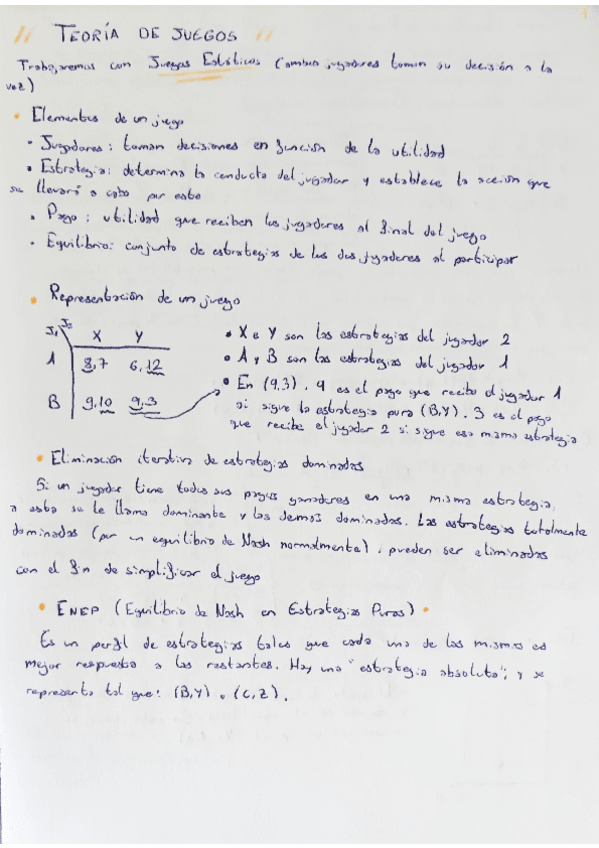 1
" TEORÍA DE JUEGOS "
Trabajaremos con Juegos Estáticos (ambos jugadores toman su decisión a la
vez)
• Elementos de un juego
• Jugadores: toman decisiones en función de la utilidad
• Estrategia: determina la conducta del jugador y establece la acción que
se llevará a cabo por este
• Pago: utilidad que reciben los jugadores al final del juego
• Equilibrio: conjunto de estrategias de los dos jugadores al participar
• Representación de un juego
J1 J2 X Y
A 8,7 6,12
B 9,10 9,3
• X e Y son las estrategias del jugador 2
• A y B son las estrategias del jugador 1
• En (9,3), 9 es el pago que recibe el jugador 1
si sigue la estrategia pura (B,Y). 3 es el pago
que recibe el jugador 2 si sigue esa misma estrategia
• Eliminación iterativa de estrategias dominadas
Si un jugador tiene todos sus pagos ganadores en una misma estrategia,
a esta se le llama dominante y las demás dominadas. Las estrategias totalmente
dominadas (por un equilibrio de Nash normalmente), pueden ser eliminadas
con el fin de simplificar el juego
• ENEP (Equilibrio de Nash en Estrategias Puras) •
Es un perfil de estrategias tales que cada una de las mismas es
mejor respuesta a las restantes. Hay una "estrategia absoluta", y se
representa tal que: (B,Y) o (C,Z).